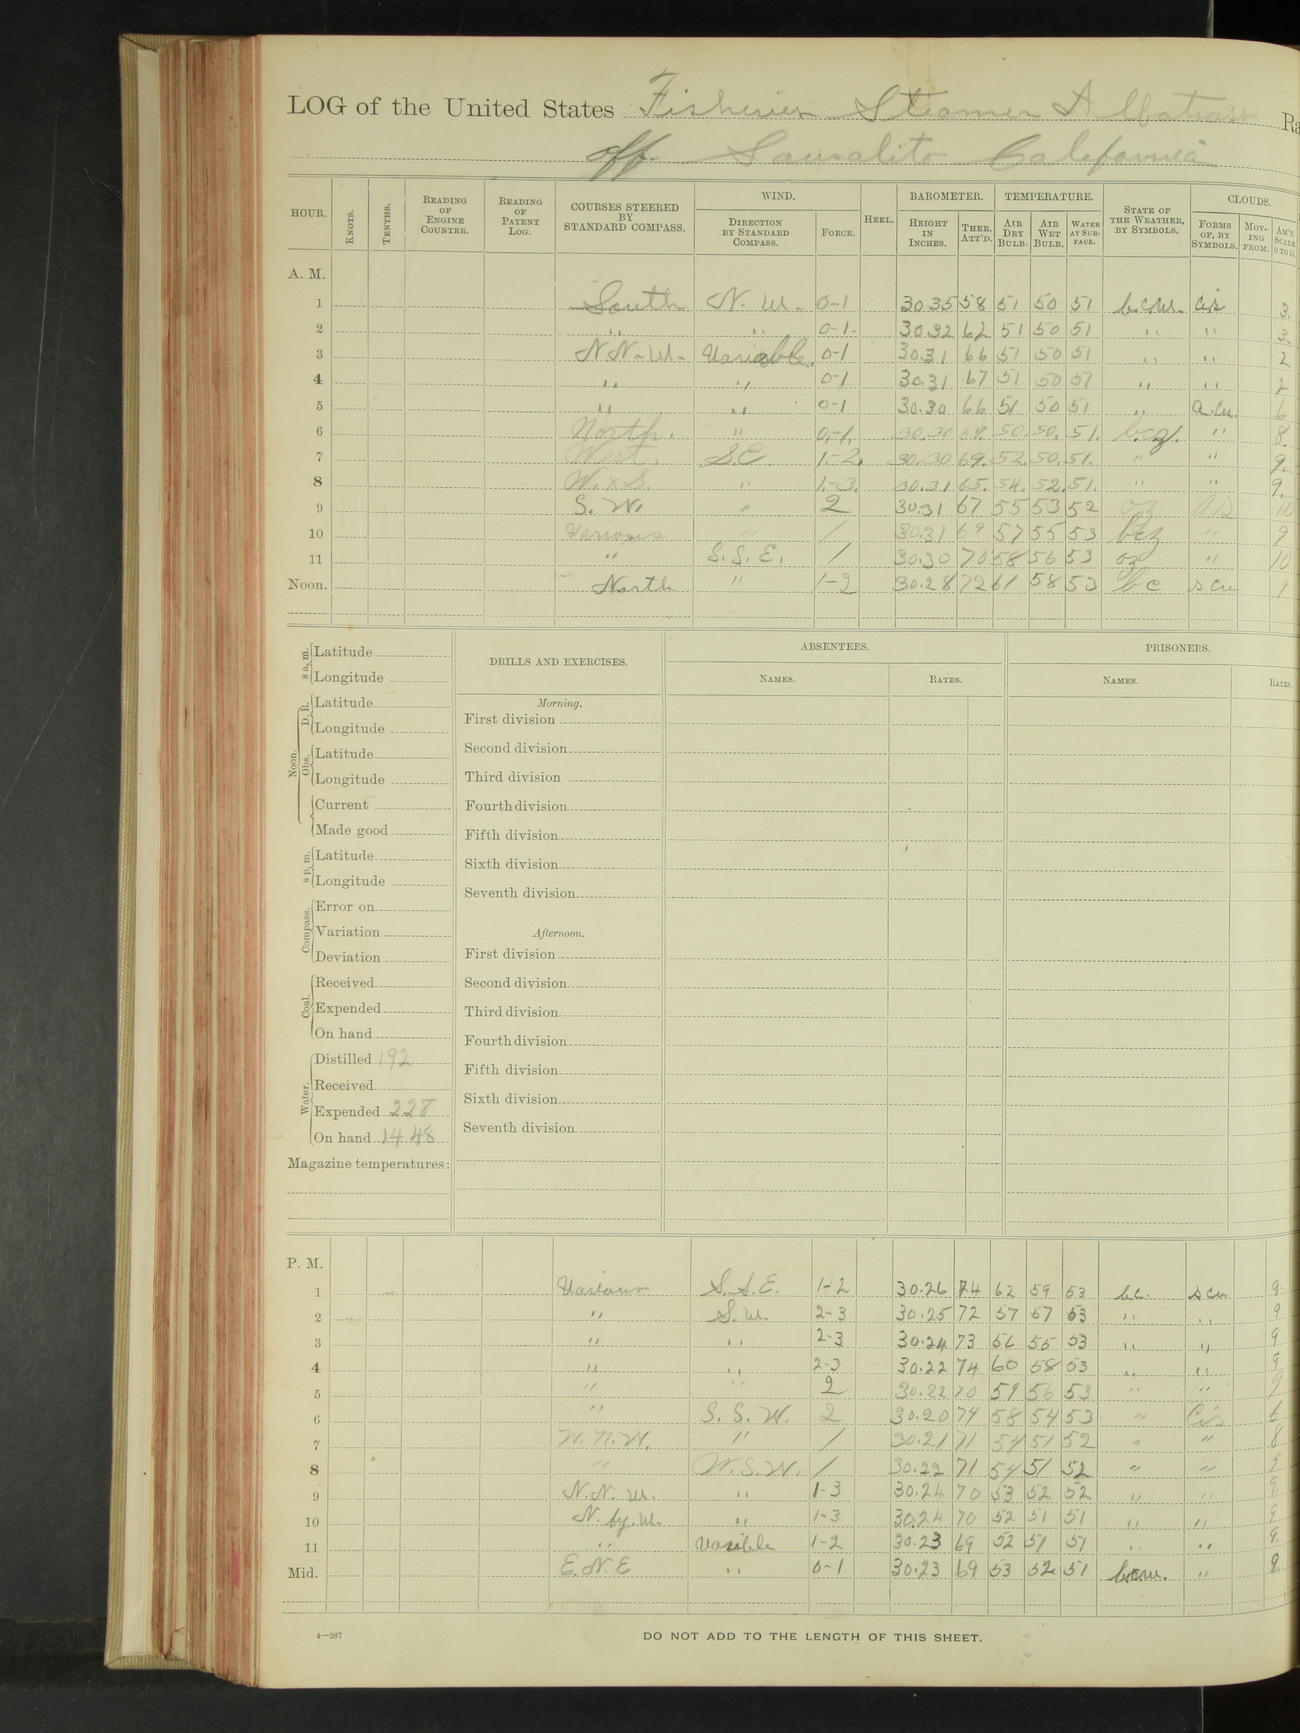 LOG of the United States Fisheries Steamer Albatross Ra
off Sausalito California
HOUR. KNOTS. TENTHS. READING OF ENGINE COUNTER. READING OF PATENT LOG. COURSES STEERED BY STANDARD COMPASS. WIND. DIRECTION BY STANDARD COMPASS. FORCE. HEEL. BAROMETER. HEIGHT IN INCHES. THER. ATT'D. TEMPERATURE. AIR DRY BULB. AIR WET BULB. WATER AT SURFACE. STATE OF THE WEATHER, BY SYMBOLS. CLOUDS. FORMS OF, BY SYMBOLS. MOVING FROM. AM'T. SCALE 0 TO 10.
A. M.
1 South N. W. 0-1 30.35 58 51 50 51 b.c.w. cis 3.
2 " " 0-1. 30.32 62 51 50 51 " " 3.
3 N.N.W. Variable. 0-1 30.31 66 51 50 51 " " 2
4 " " 0-1 30.31 67 51 50 51 " " 2
5 " " 0-1 30.30 66 51 50 51 " a.cu. 6
6 North. " 0-1. 30.30 69. 50. 50. 51. b.c.z. " 8.
7 West. S.E. 1-2. 30.30 69. 52. 50. 51. " " 9.
8 W. x S. " 1-3. 30.31 65. 54. 52. 51. " " 9.
9 S. W. " 2 30.31 67 55 53 52 oz 10
10 Various " 1 30.31 69 57 55 53 bcz " 9
11 " S. S. E. 1 30.30 70 58 56 53 oz " 10
Noon. North " 1-2 30.28 72 61 58 53 bc s cu 9
8 a. m. Latitude
Longitude
Noon. D. R. Latitude
Longitude
Obs. Latitude
Longitude
Current
Made good
8 p. m. Latitude
Longitude
Compass. Error on
Variation
Deviation
Coal. Received
Expended
On hand
Water. Distilled 192
Received
Expended 228
On hand 1448
Magazine temperatures:
DRILLS AND EXERCISES.
Morning.
First division
Second division
Third division
Fourth division
Fifth division
Sixth division
Seventh division
Afternoon.
First division
Second division
Third division
Fourth division
Fifth division
Sixth division
Seventh division
ABSENTEES.
NAMES. RATES.
PRISONERS.
NAMES. RATES.
P. M.
1 Various S. S. E. 1-2 30.26 74 62 59 53 bc. s cu 9.
2 " S. W. 2-3 30.25 72 57 57 53 " " 9
3 " " 2-3 30.24 73 56 55 53 " " 9
4 " " 2-3 30.22 74 60 58 53 " " 9
5 " " 2 30.22 70 59 56 53 " " 9
6 " S. S. W. 2 30.20 74 58 54 53 " Cis 6
7 W. N. W. " 1 30.21 71 54 51 52 " " 8
8 " W. S. W. 1 30.22 71 54 51 52 " " 9
9 N. N. W. " 1-3 30.24 70 53 52 52 " " 9.
10 N. by. W. " 1-3 30.24 70 52 51 51 " " 9
11 " Varible 1-2 30.23 69 52 51 51 " " 9.
Mid. E. N. E " 0-1 30.23 69 53 52 51 bcw. " 9.
4—287
DO NOT ADD TO THE LENGTH OF THIS SHEET.